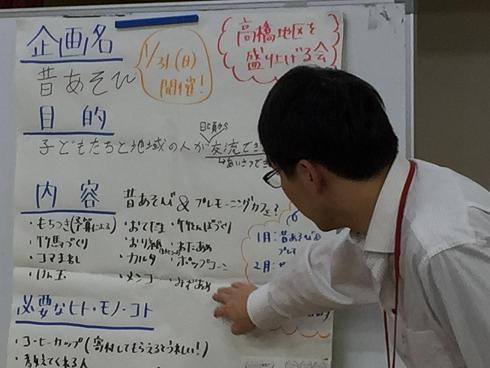 企画名
昔あそび
1/31(日)
開催!
高橋地区を
盛り上げる会
目的
日頃から
子どもたちと地域の人が交流でき
内容 昔あそび&プレモーニングカフェ?
・もちつき(予算による) ・おてだま
・竹馬づくり ・おり紙 ・わたあめ
・コマまわし ・カルタ ・ポップコーン
・けん玉 ・メンコ ・みずあめ
1月:昔あそび
2月:
必要なヒト・モノ・コト
・コーヒーカップ(寄付してもらえるとうれしい!)
・考えてくれる人